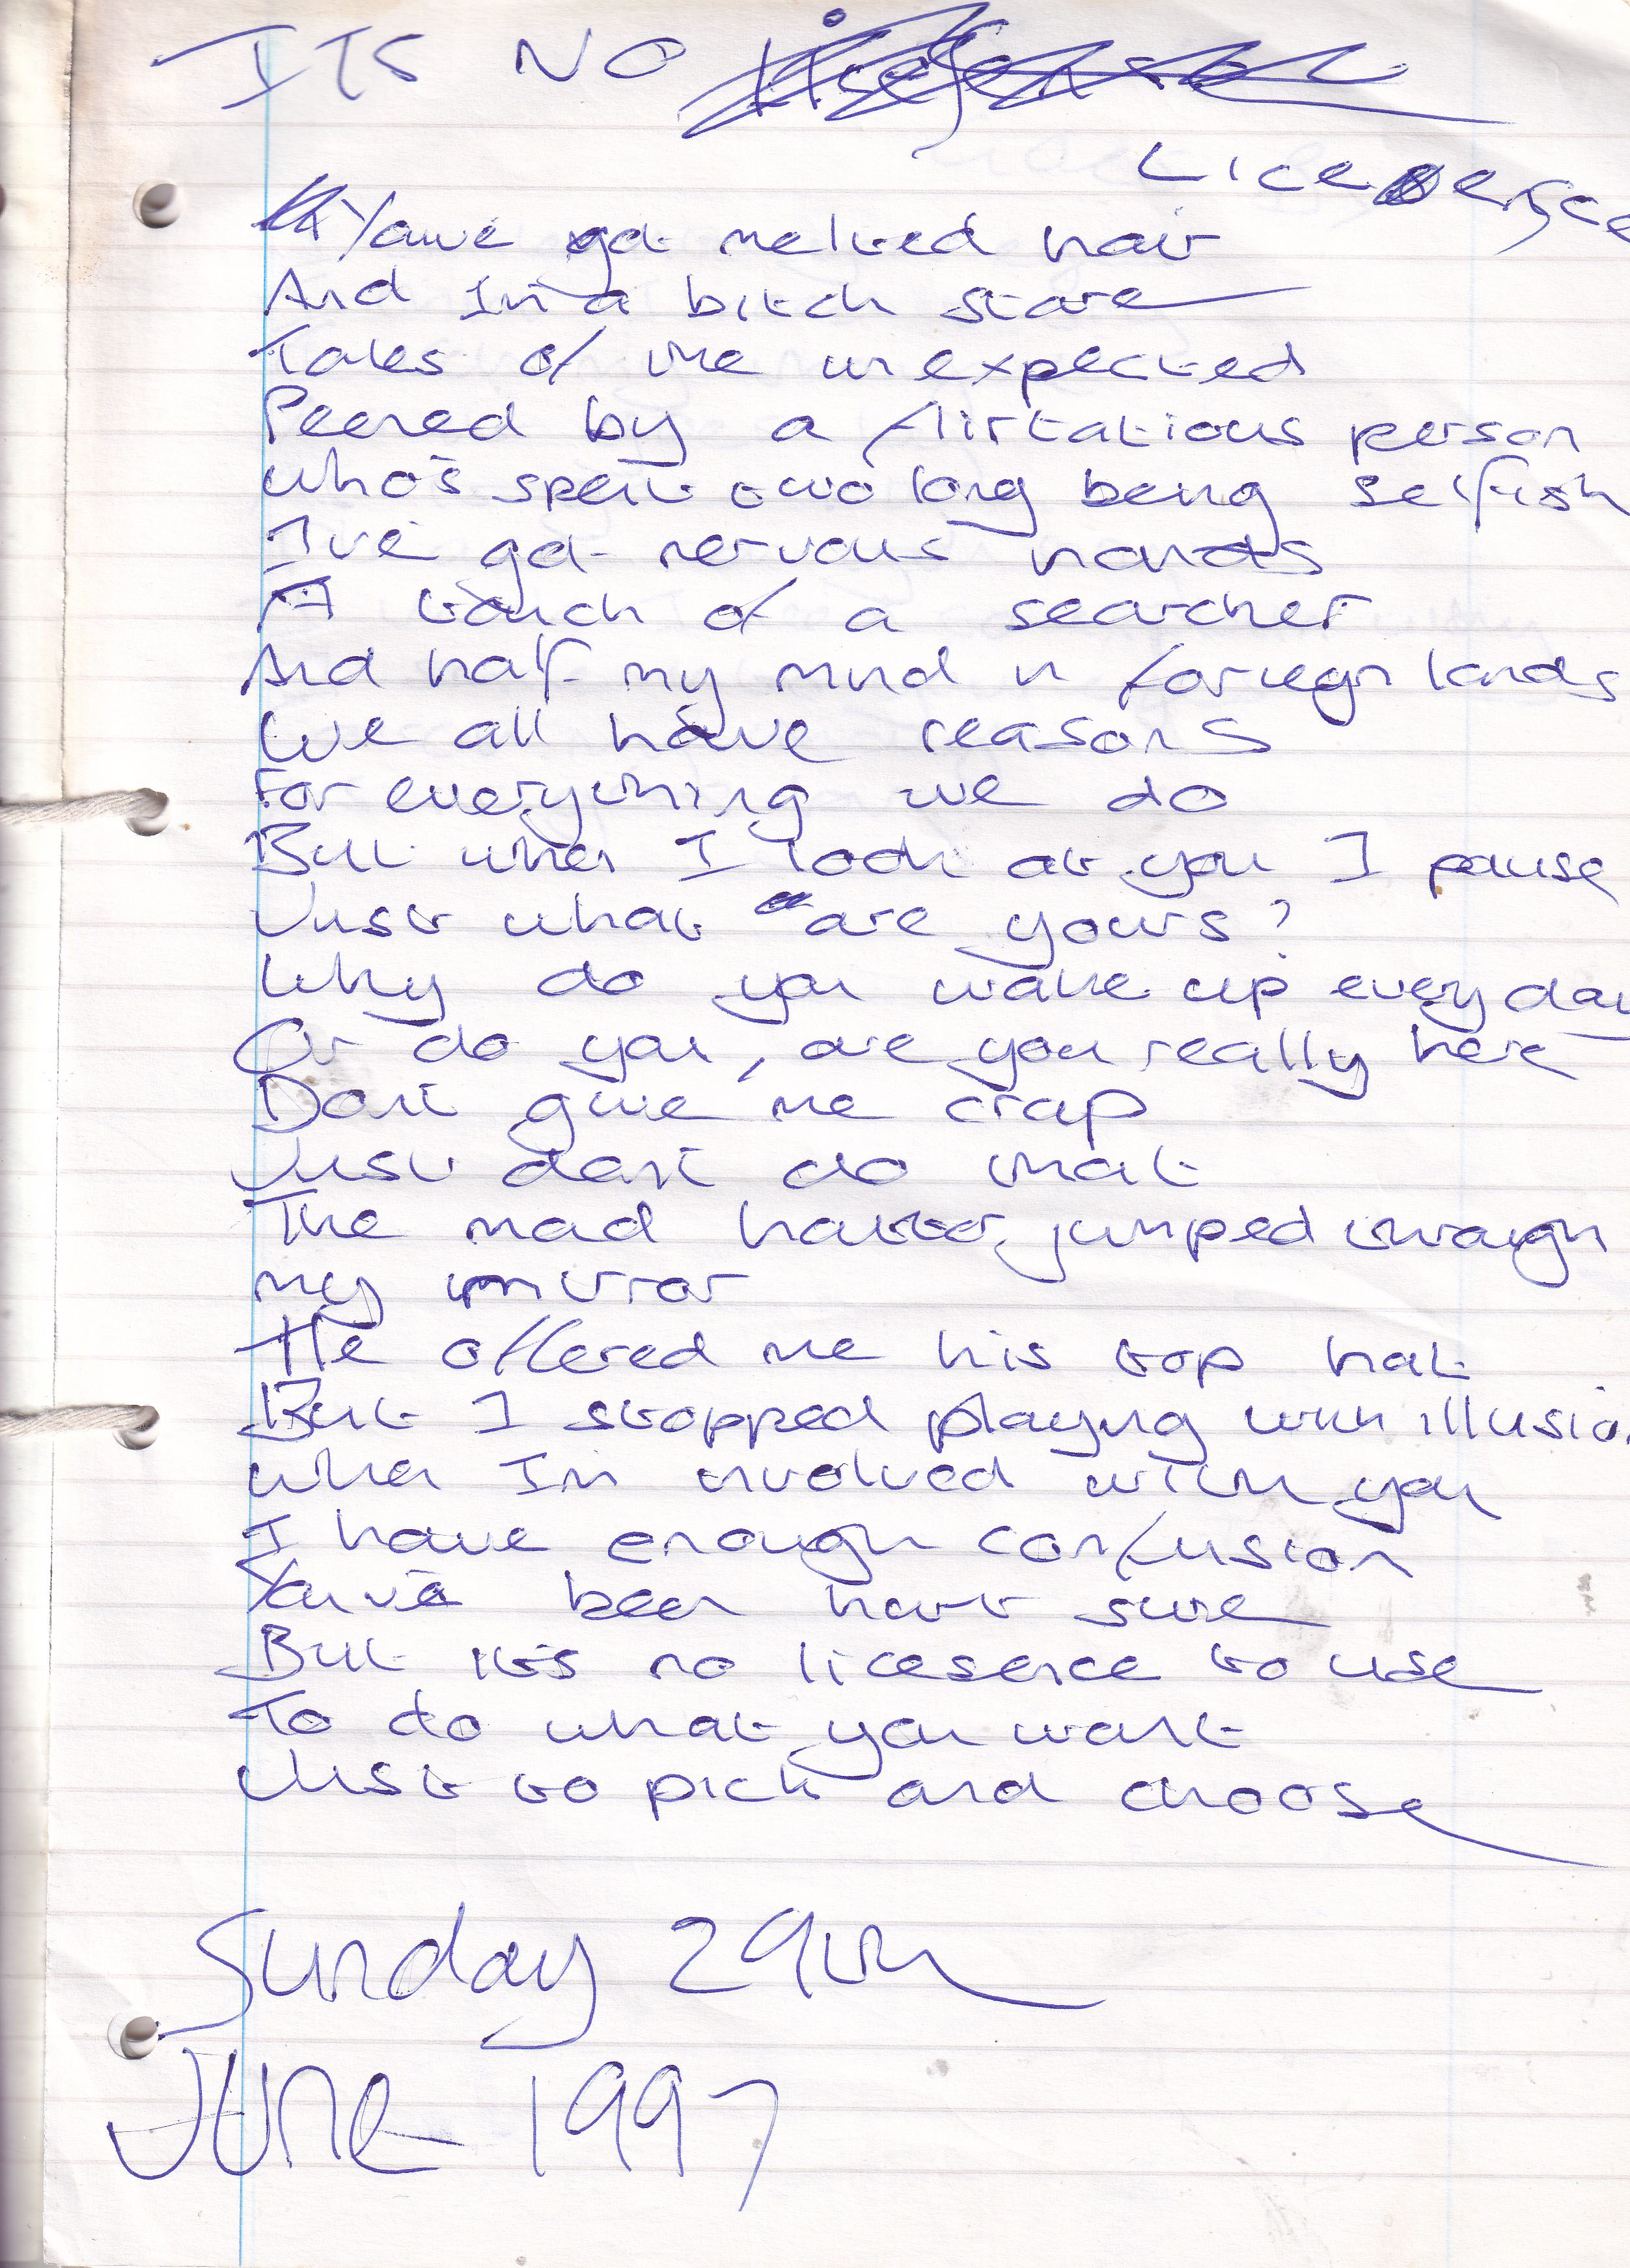 ITS NO
Licesence
You've got melted hair
And I'm a bitch stare
Tales of the unexpected
Peered by a flirtatious person
who's spent two long being selfish
I've got nervous hands
A touch of a searcher
And half my mind in foriegn lands
We all have reasons
For everything we do
But when I look at you I pause
Just what are yours?
Why do you wake up every day
Or do you, are you really here
Don't give me crap
Just don't do that
The mad hatter, jumped through
my mirror
He offered me his top hat
But I stopped playing with illusion
when I'm involved with you
I have enough confusion
You've been hurt sure
But it's no licesence to use
To do what you want
Just to pick and choose
Sunday 29th
JUNE 1997